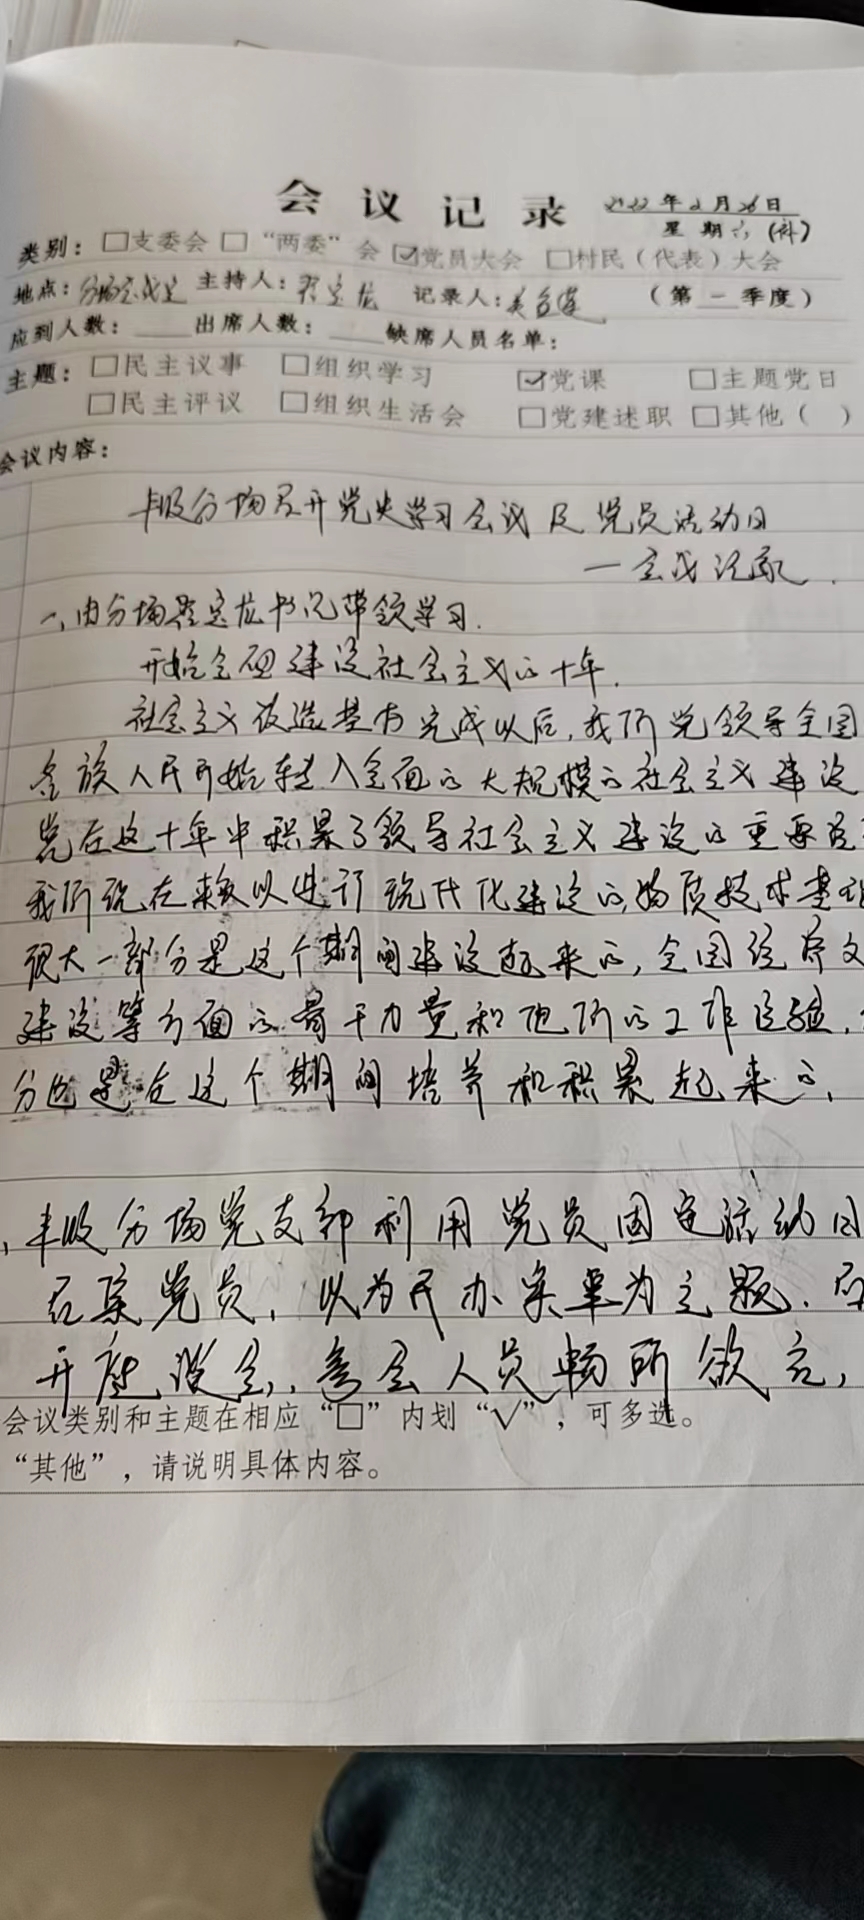 会议记录 2022年2月26日
星期六(补)
类别：□支委会 □“两委”会 ☑党员大会 □村民（代表）大会
地点：分场会议室 主持人： 记录人： （第一季度）
应到人数： 出席人数： 缺席人员名单：
主题：□民主议事 □组织学习 ☑党课 □主题党日
□民主评议 □组织生活会 □党建述职 □其他（ ）
会议内容：
丰收分场召开党史学习会议及党员活动日
一会议记录.
一、由分场书记带领学习.
开始全面建设社会主义的十年.
社会主义改造基本完成以后,我们党领导全国
各族人民开始转入全面的大规模的社会主义建设
党在这十年中积累了领导社会主义建设的重要经
我们现在赖以进行现代化建设的,物质技术基础
很大一部分是这个期间建设起来的,全国经济文
建设等方面的骨干力量和他们的工作经验,
分也是在这个期间培养和积累起来的,
、丰收分场党支部利用党员固定活动日
召集党员,以为民办实事为主题.召
开座谈会,参会人员畅所欲言,
会议类别和主题在相应“□”内划“√”，可多选。
“其他”，请说明具体内容。